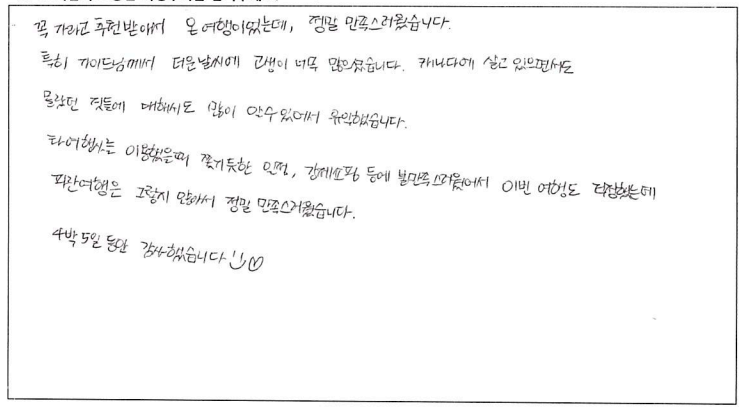 꼭 가라고 추천받아서 온 여행이었는데, 정말 만족스러웠습니다.
특히 가이드님께서 더운날씨에 고생이 너무 많으셨습니다. 캐나다에 살고 있으면서도
몰랐던 것들에 대해서도 많이 알수있어서 유익했습니다.
타여행사는 이용했을때 쫓기듯한 일정, 강제쇼핑 등에 불만족스러웠어서 이번 여행도 걱정했는데
파란여행은 그렇지 않아서 정말 만족스러웠습니다.
4박 5일 동안 감사했습니다 :) ♡